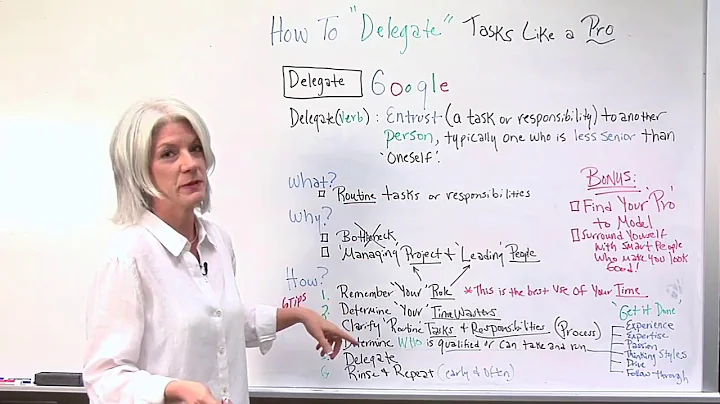 How To "Delegate" Tasks Like a Pro
Delegate Google
Delegate (Verb) : Entrust (a task or responsibility) to another
person, typically one who is less senior than
'Oneself'.
What?
Routine tasks or responsibilities
Why?
Bottleneck
'Managing' Project + 'Leading' People
How?
6 Tips
1. Remember 'Your' Role * This is the best use of Your Time
2. Determine 'Your' Time Wasters
Clarify 'Routine' Tasks + Responsibilities (Process)
Determine WHO is qualified or can take and run
Delegate
6. Rinse & Repeat (early & often)
Bonus:
Find Your 'Pro'
to Model
Surround Yourself
with Smart People
who make you look
Good!
'Get it Done
Experience
Expertise
Passion
Thinking Styles
Drive
Follow-through